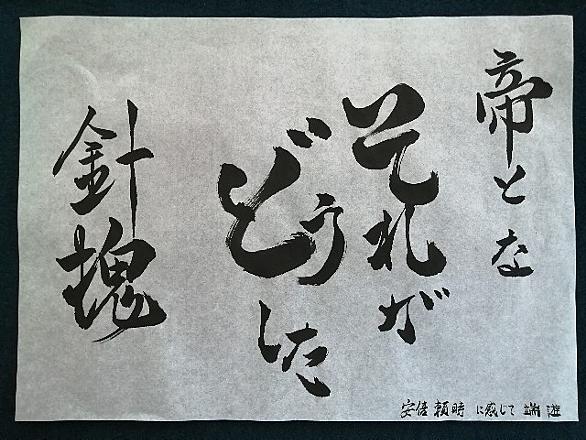 帝とな
それが
どうした
針塊
安倍頼時に感じて 端遊